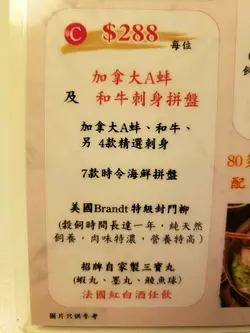 C $288 每位
加拿大A蚌
及 和牛刺身拼盤
加拿大A蚌、和牛、
另 4款精選刺身
7款時令海鮮拼盤
美國Brandt特級封門柳
(穀飼時間長達一年，純天然
飼養，肉味特濃，營養特高)
招牌自家製三寶丸
(蝦丸、墨丸、鯪魚球)
法國紅白酒任飲
圖片只供參考
80
配